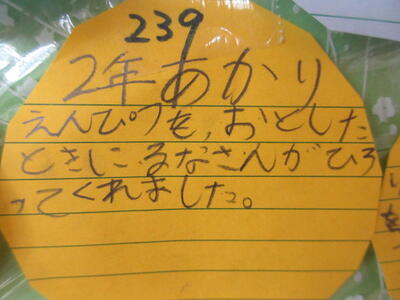 239
2年あかり
えんぴつを、おとした
ときに、るなさんがひろ
ってくれました。